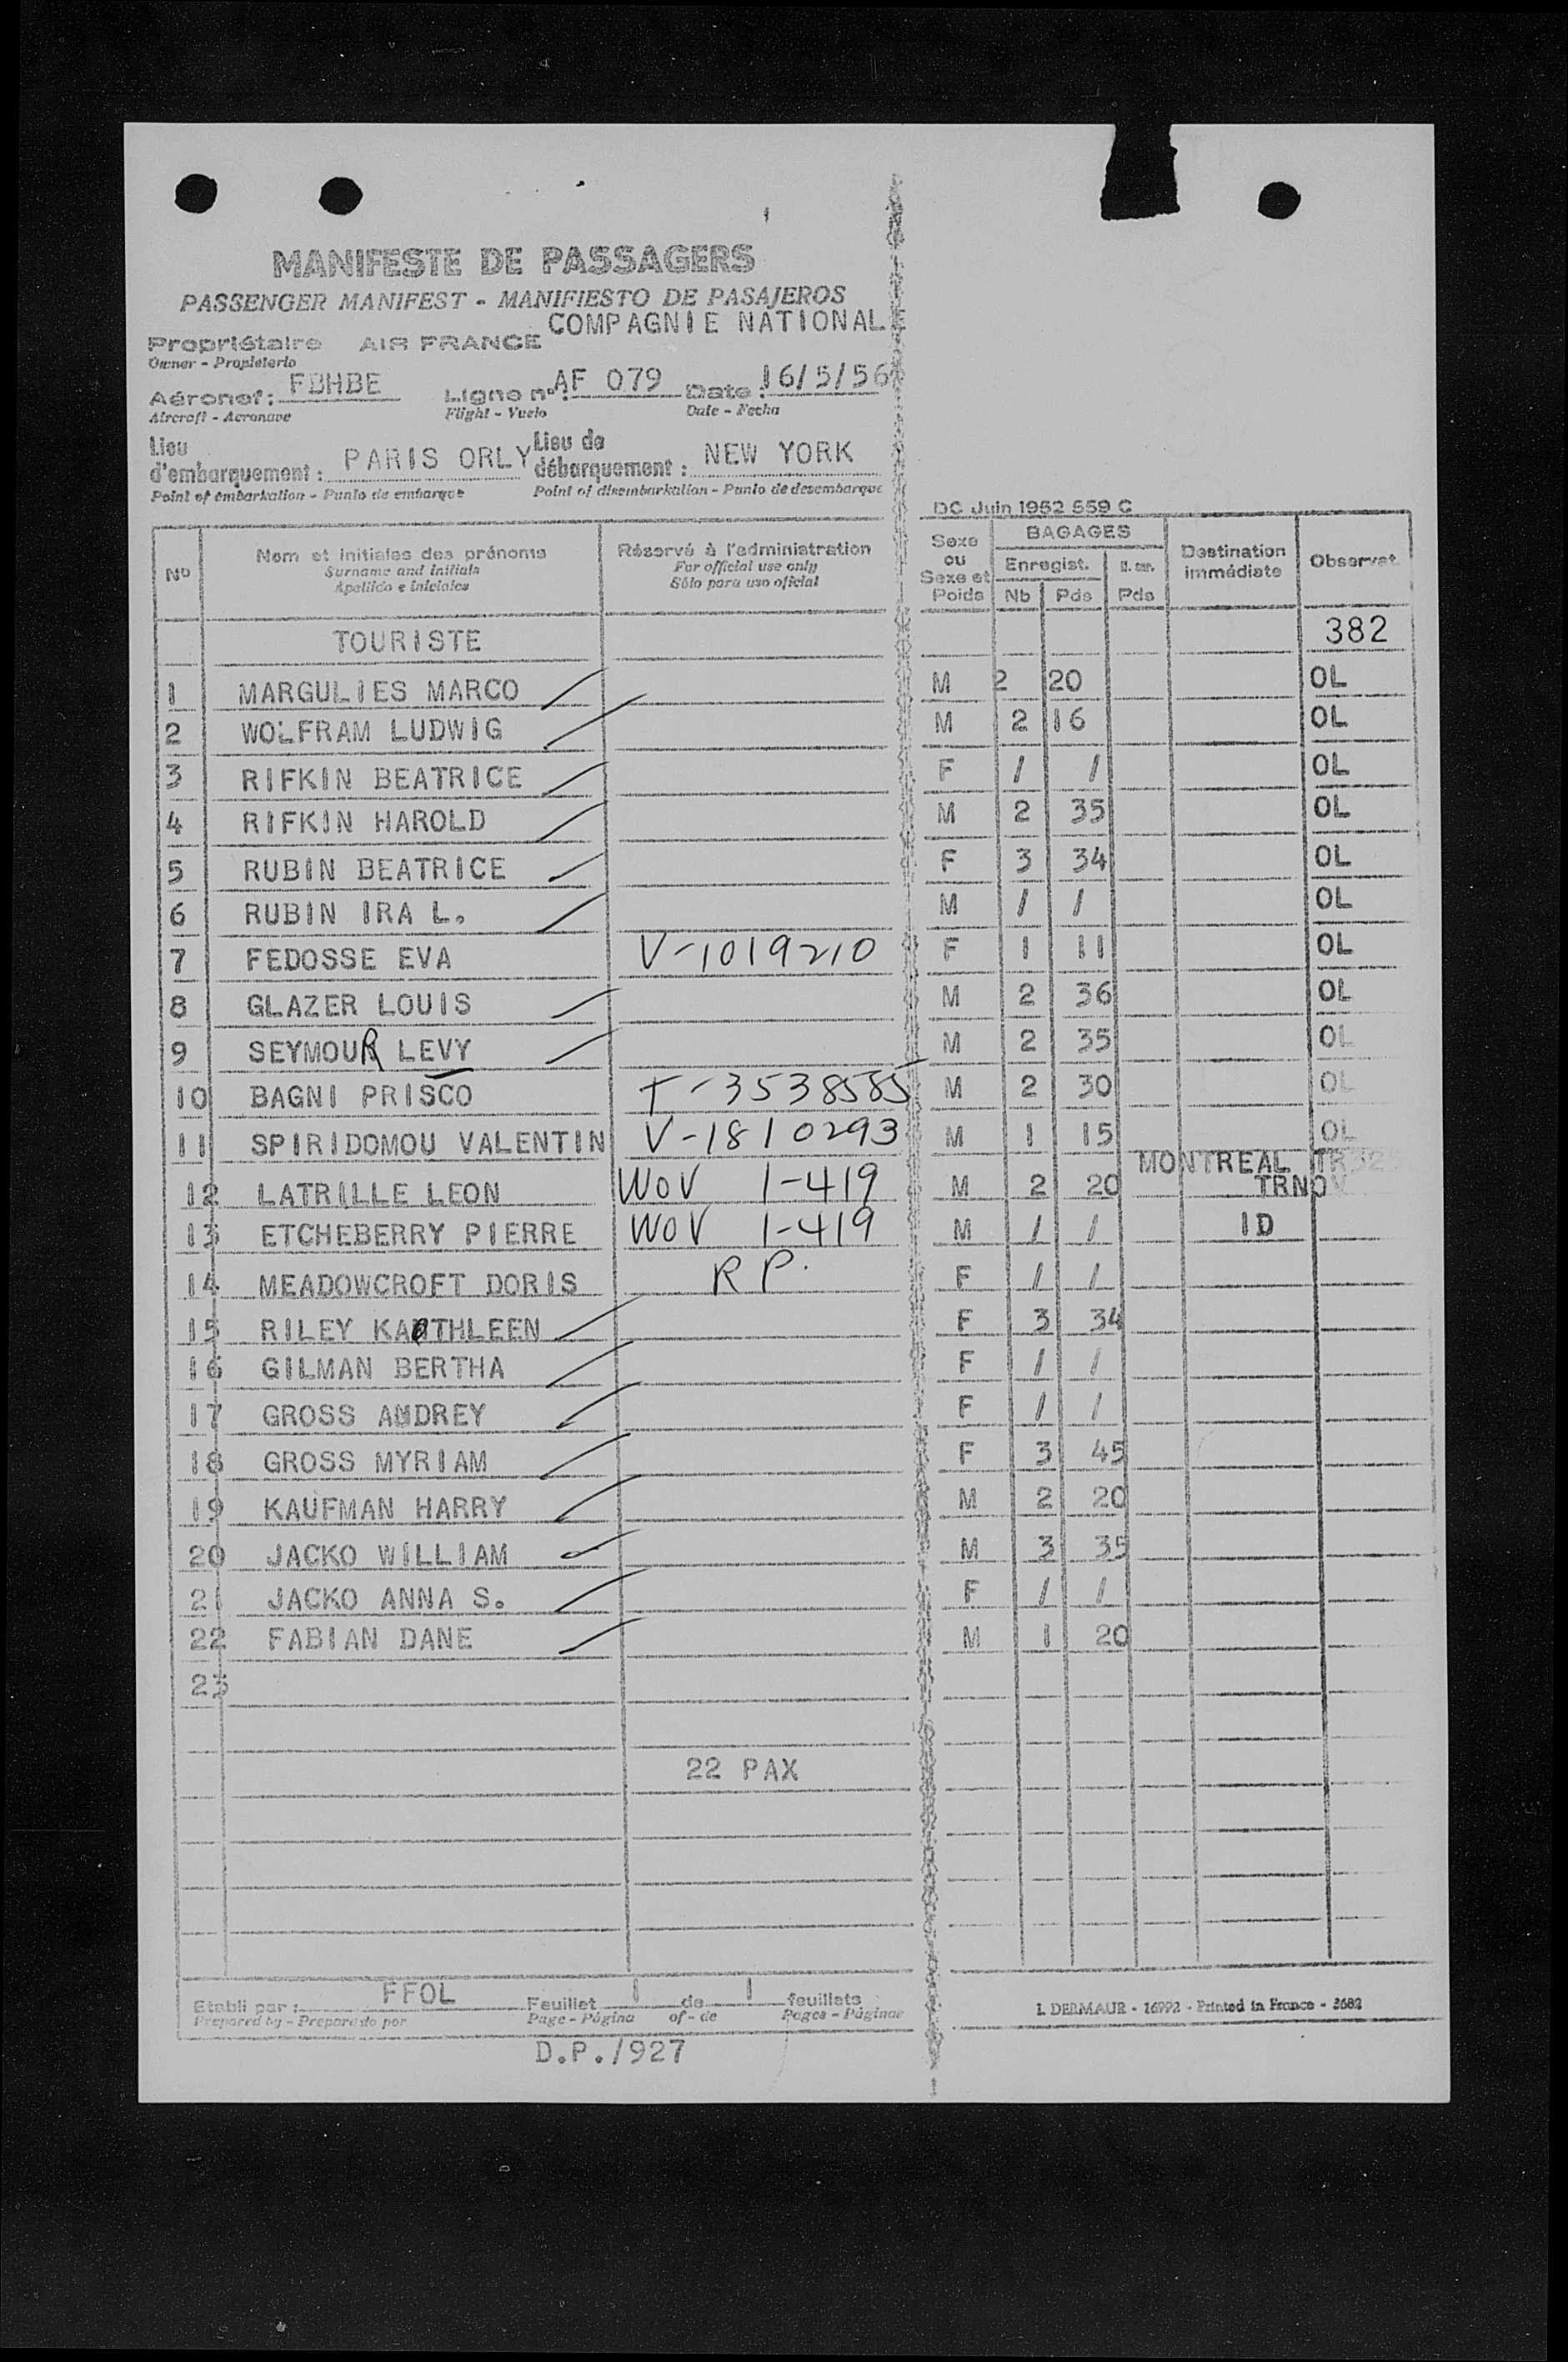 MANIFESTE DE PASSAGERS
PASSENGER MANIFEST - MANIFIESTO DE PASAJEROS
COMPAGNIE NATIONALE
Propriétaire AIR FRANCE
Owner - Propietario
Aéronef : FBHBE Ligne n° : AF 079 Date : 16/5/56
Aircraft - Aeronave Flight - Vuelo Date - Fecha
Lieu d'embarquement : PARIS ORLY Lieu de débarquement : NEW YORK
Point of embarkation - Punto de embarque Point of disembarkation - Punto de desembarque
DC Juin 1952 559 C
No Nom et initiales des prénoms Réservé à l'administration Sexe ou Sexe et Poids BAGAGES Destination immédiate Observat.
Surname and initials For official use only Enregist.
Apellido e iniciales Sólo para uso oficial Nb Pds Pds
TOURISTE 382
1 MARGULIES MARCO M 2 20 OL
2 WOLFRAM LUDWIG M 2 16 OL
3 RIFKIN BEATRICE F / / OL
4 RIFKIN HAROLD M 2 35 OL
5 RUBIN BEATRICE F 3 34 OL
6 RUBIN IRA L. M / / OL
7 FEDOSSE EVA V-1019210 F 1 11 OL
8 GLAZER LOUIS M 2 36 OL
9 SEYMOUR LEVY M 2 35 OL
10 BAGNI PRISCO T-3538585 M 2 30 OL
11 SPIRIDOMOU VALENTIN V-1810293 M 1 15 OL
MONTREAL
12 LATRILLE LEON WOV 1-419 M 2 20 TRNOV
13 ETCHEBERRY PIERRE WOV 1-419 M / / ID
14 MEADOWCROFT DORIS R P. F / /
15 RILEY KATHLEEN F 3 34
16 GILMAN BERTHA F / /
17 GROSS AUDREY F / /
18 GROSS MYRIAM F 3 45
19 KAUFMAN HARRY M 2 20
20 JACKO WILLIAM M 3 35
21 JACKO ANNA S. F / /
22 FABIAN DANE M 1 20
23
22 PAX
Etabli par : FFOL Feuillet 1 de 1 feuillets
Prepared by - Preparado por Page - Página of - de Pages - Páginas
I. DERMAUR - 16992 - Printed in France - 2682
D.P./927